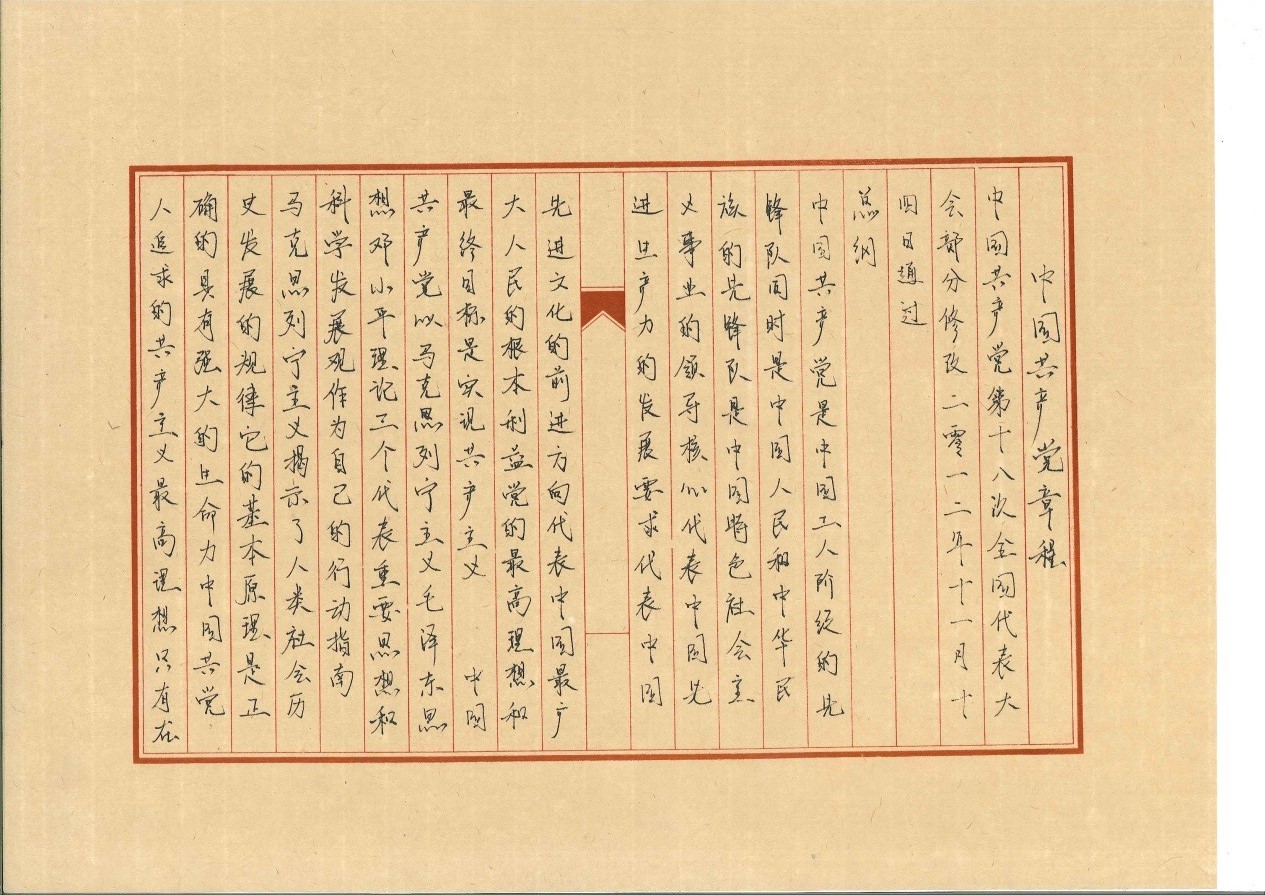 中国共产党章程
中国共产党第十八次全国代表大
会部分修改二零一二年十一月十
四日通过
总纲
中国共产党是中国工人阶级的先
锋队同时是中国人民和中华民
族的先锋队是中国特色社会主
义事业的领导核心代表中国先
进生产力的发展要求代表中国
先进文化的前进方向代表中国最广
大人民的根本利益党的最高理想和
最终目标是实现共产主义 中国
共产党以马克思列宁主义毛泽东思
想邓小平理论三个代表重要思想和
科学发展观作为自己的行动指南
马克思列宁主义揭示了人类社会历
史发展的规律它的基本原理是正
确的具有强大的生命力中国共党
人追求的共产主义最高理想只有在